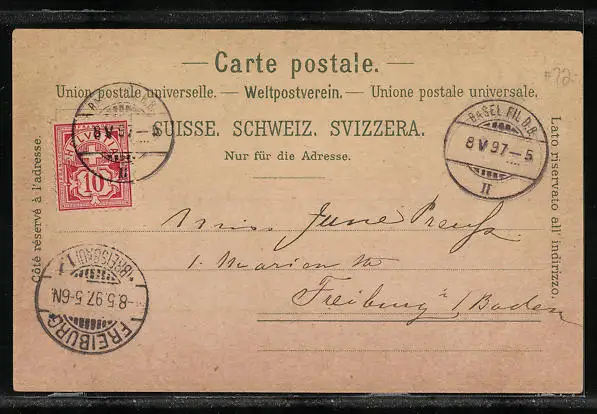 #12-
— Carte postale. —
Union postale universelle. — Weltpostverein. — Unione postale universale.
SUISSE. SCHWEIZ. SVIZZERA.
Nur für die Adresse.
Côté réservé à l'adresse.
Lato riservato all' indirizzo.
HELVETIA
10
8 V 97–5
II
BASEL FIL.B.B.
8 V 97–5
II
Miss June Preuss.
1. Marion
Freiburg i/Baden
FREIBURG
(BREISGAU) 1
8.5.97.5-6N.